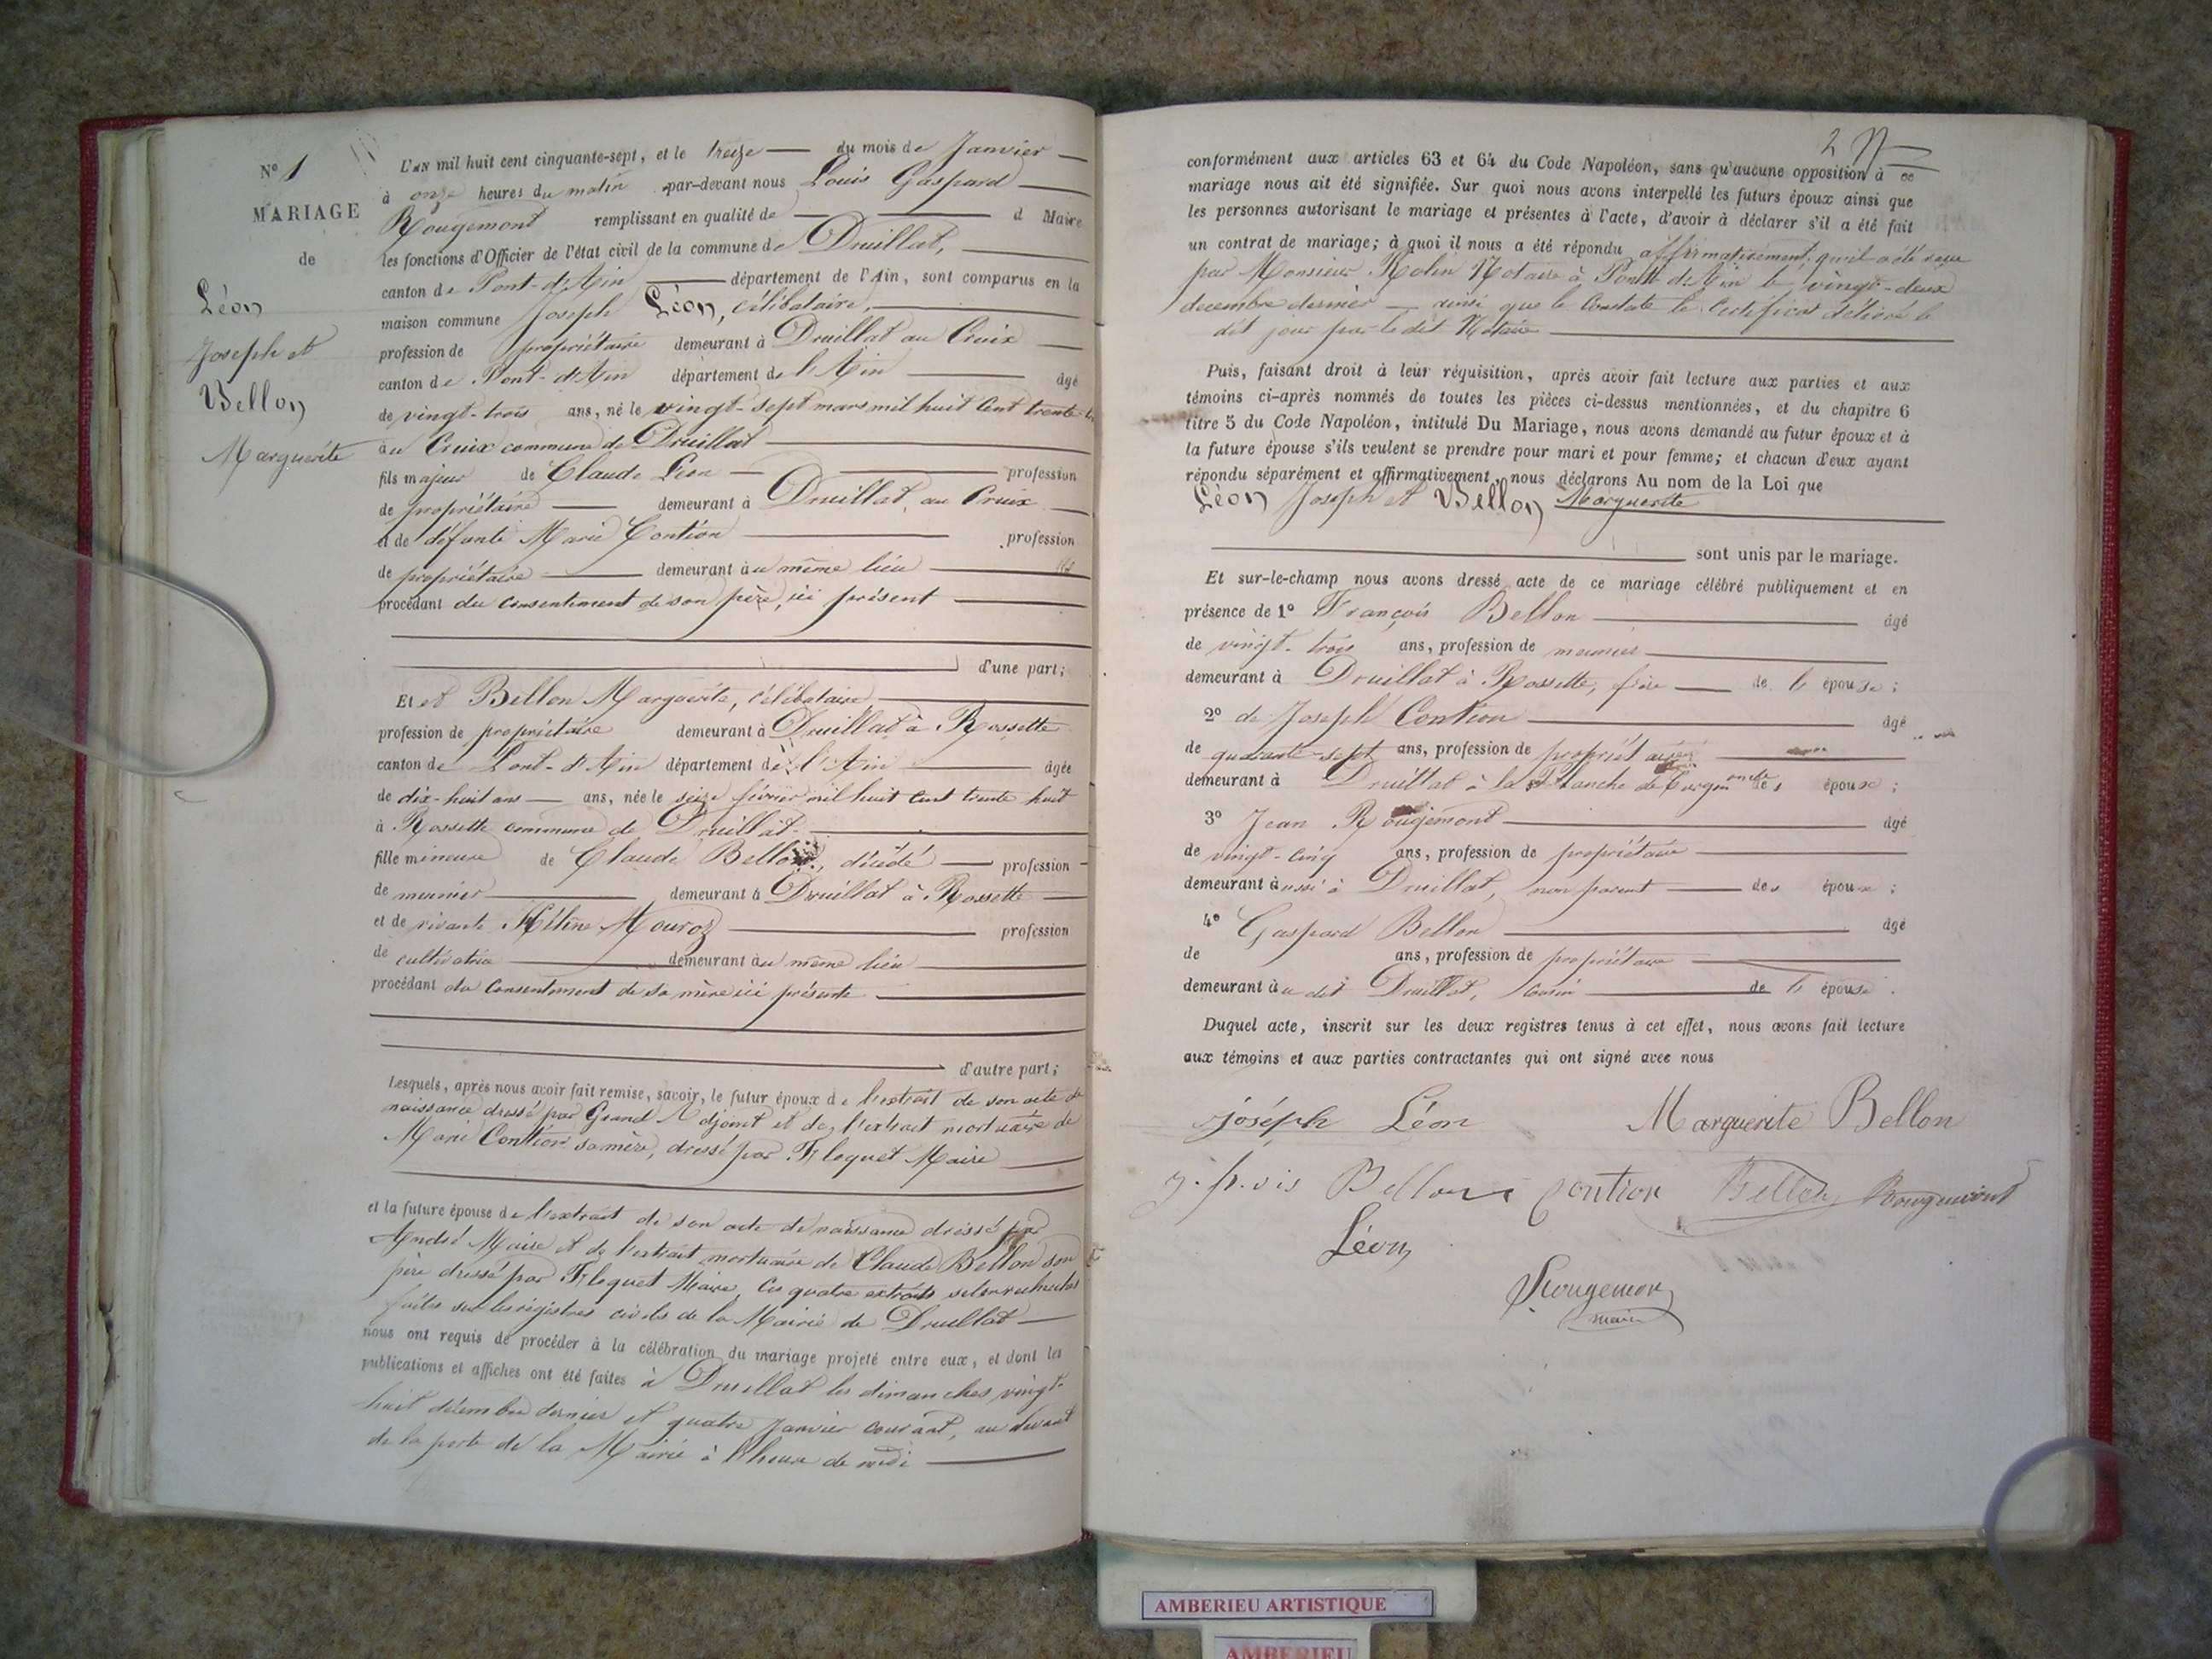 N° 1
MARIAGE
de
Léon
Joseph et
Bellon
Marguerite
L'AN mil huit cent cinquante-sept, et le treize du mois de Janvier
à onze heures du matin par-devant nous Louis Gaspard
Rougemont remplissant en qualité de d Maire
les fonctions d'Officier de l'état civil de la commune de Druillat,
canton de Pont-d'Ain département de l'Ain, sont comparus en la
maison commune Joseph Léon, célibataire,
profession de propriétaire demeurant à Druillat au Cruix
canton de Pont-d'Ain département de l'Ain âgé
de vingt-trois ans, né le vingt-sept mars mil huit cent trente
au Cruix commune de Druillat
fils majeur de Claude Léon profession
de propriétaire demeurant à Druillat, au Cruix
et de défunte Marie Contion profession
de propriétaire demeurant au même lieu
procédant du consentement de son père, ici présent
d'une part;
Et et Bellon Marguerite, célibataire
profession de propriétaire demeurant à Druillat à Rossette
canton de Pont-d'Ain département de l'Ain âgée
de dix-huit ans ans, née le seize février mil huit cent trente huit
à Rossette commune de Druillat
fille mineure de Claude Bellon, décédé profession
de meunier demeurant à Druillat à Rossette
et de vivante Hélène Mouroz profession
de cultivatrice demeurant au même lieu
procédant du consentement de sa mère ici présente
d'autre part;
Lesquels, après nous avoir fait remise, savoir, le futur époux de l'extrait de son acte de
naissance dressé par Grand Adjoint et de l'extrait mortuaire de
Marie Contion sa mère, dressé par Floquet Maire
et la future épouse de l'extrait de son acte de naissance dressé par
André Maire et de l'extrait mortuaire de Claude Bellon son
père dressé par Floquet Maire, les quatre extraits
faites sur les registres civils de la Mairie de Druillat
nous ont requis de procéder à la célébration du mariage projeté entre eux, et dont les
publications et affiches ont été faites à Druillat les dimanches vingt-
huit décembre dernier et quatre Janvier courant, au devant
de la porte de la Mairie à l'heure de midi
2
conformément aux articles 63 et 64 du Code Napoléon, sans qu'aucune opposition à ce
mariage nous ait été signifiée. Sur quoi nous avons interpellé les futurs époux ainsi que
les personnes autorisant le mariage et présentes à l'acte, d'avoir à déclarer s'il a été fait
un contrat de mariage; à quoi il nous a été répondu affirmativement, qu'il a été reçu
par Monsieur Notaire à Pont d'Ain le vingt-deux
decembre dernier ainsi que le constate le certificat délivré le
dit jour par le dit Notaire
Puis, faisant droit à leur réquisition, après avoir fait lecture aux parties et aux
témoins ci-après nommés de toutes les pièces ci-dessus mentionnées, et du chapitre 6
titre 5 du Code Napoléon, intitulé Du Mariage, nous avons demandé au futur époux et à
la future épouse s'ils veulent se prendre pour mari et pour femme; et chacun d'eux ayant
répondu séparément et affirmativement, nous déclarons Au nom de la Loi que
Léon Joseph et Bellon Marguerite
sont unis par le mariage.
Et sur-le-champ nous avons dressé acte de ce mariage célébré publiquement et en
présence de 1° François Bellon âgé
de vingt-trois ans, profession de meunier
demeurant à Druillat à Rossette, frère de l'épouse;
2° de Joseph Contion âgé
de quarante-sept ans, profession de propriétaire
demeurant à Druillat à la Planche de oncle des épouse;
3° Jean Rougemont âgé
de vingt-cinq ans, profession de propriétaire
demeurant aussi à Druillat, non parent des époux;
4° Gaspard Bellon âgé
de ans, profession de propriétaire
demeurant au dit Druillat, cousin de l'épouse.
Duquel acte, inscrit sur les deux registres tenus à cet effet, nous avons fait lecture
aux témoins et aux parties contractantes qui ont signé avec nous
joséph Léon Marguerite Bellon
Bellon Contion Bellon Rougemont
Léon
Rougemont
maire
AMBERIEU ARTISTIQUE
AMBERIEU